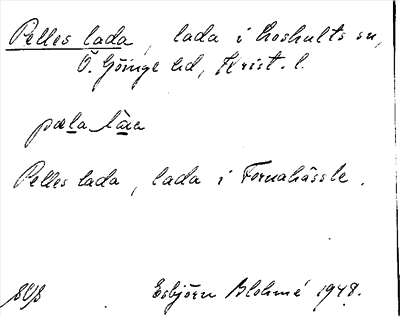 Pelles lada, lada i Loshults sn,
Ö. Göinge hd, Krist. l.
pæla làa
Pelles lada, lada i Fornahässle.
Esbjörn Blohmé 1948.